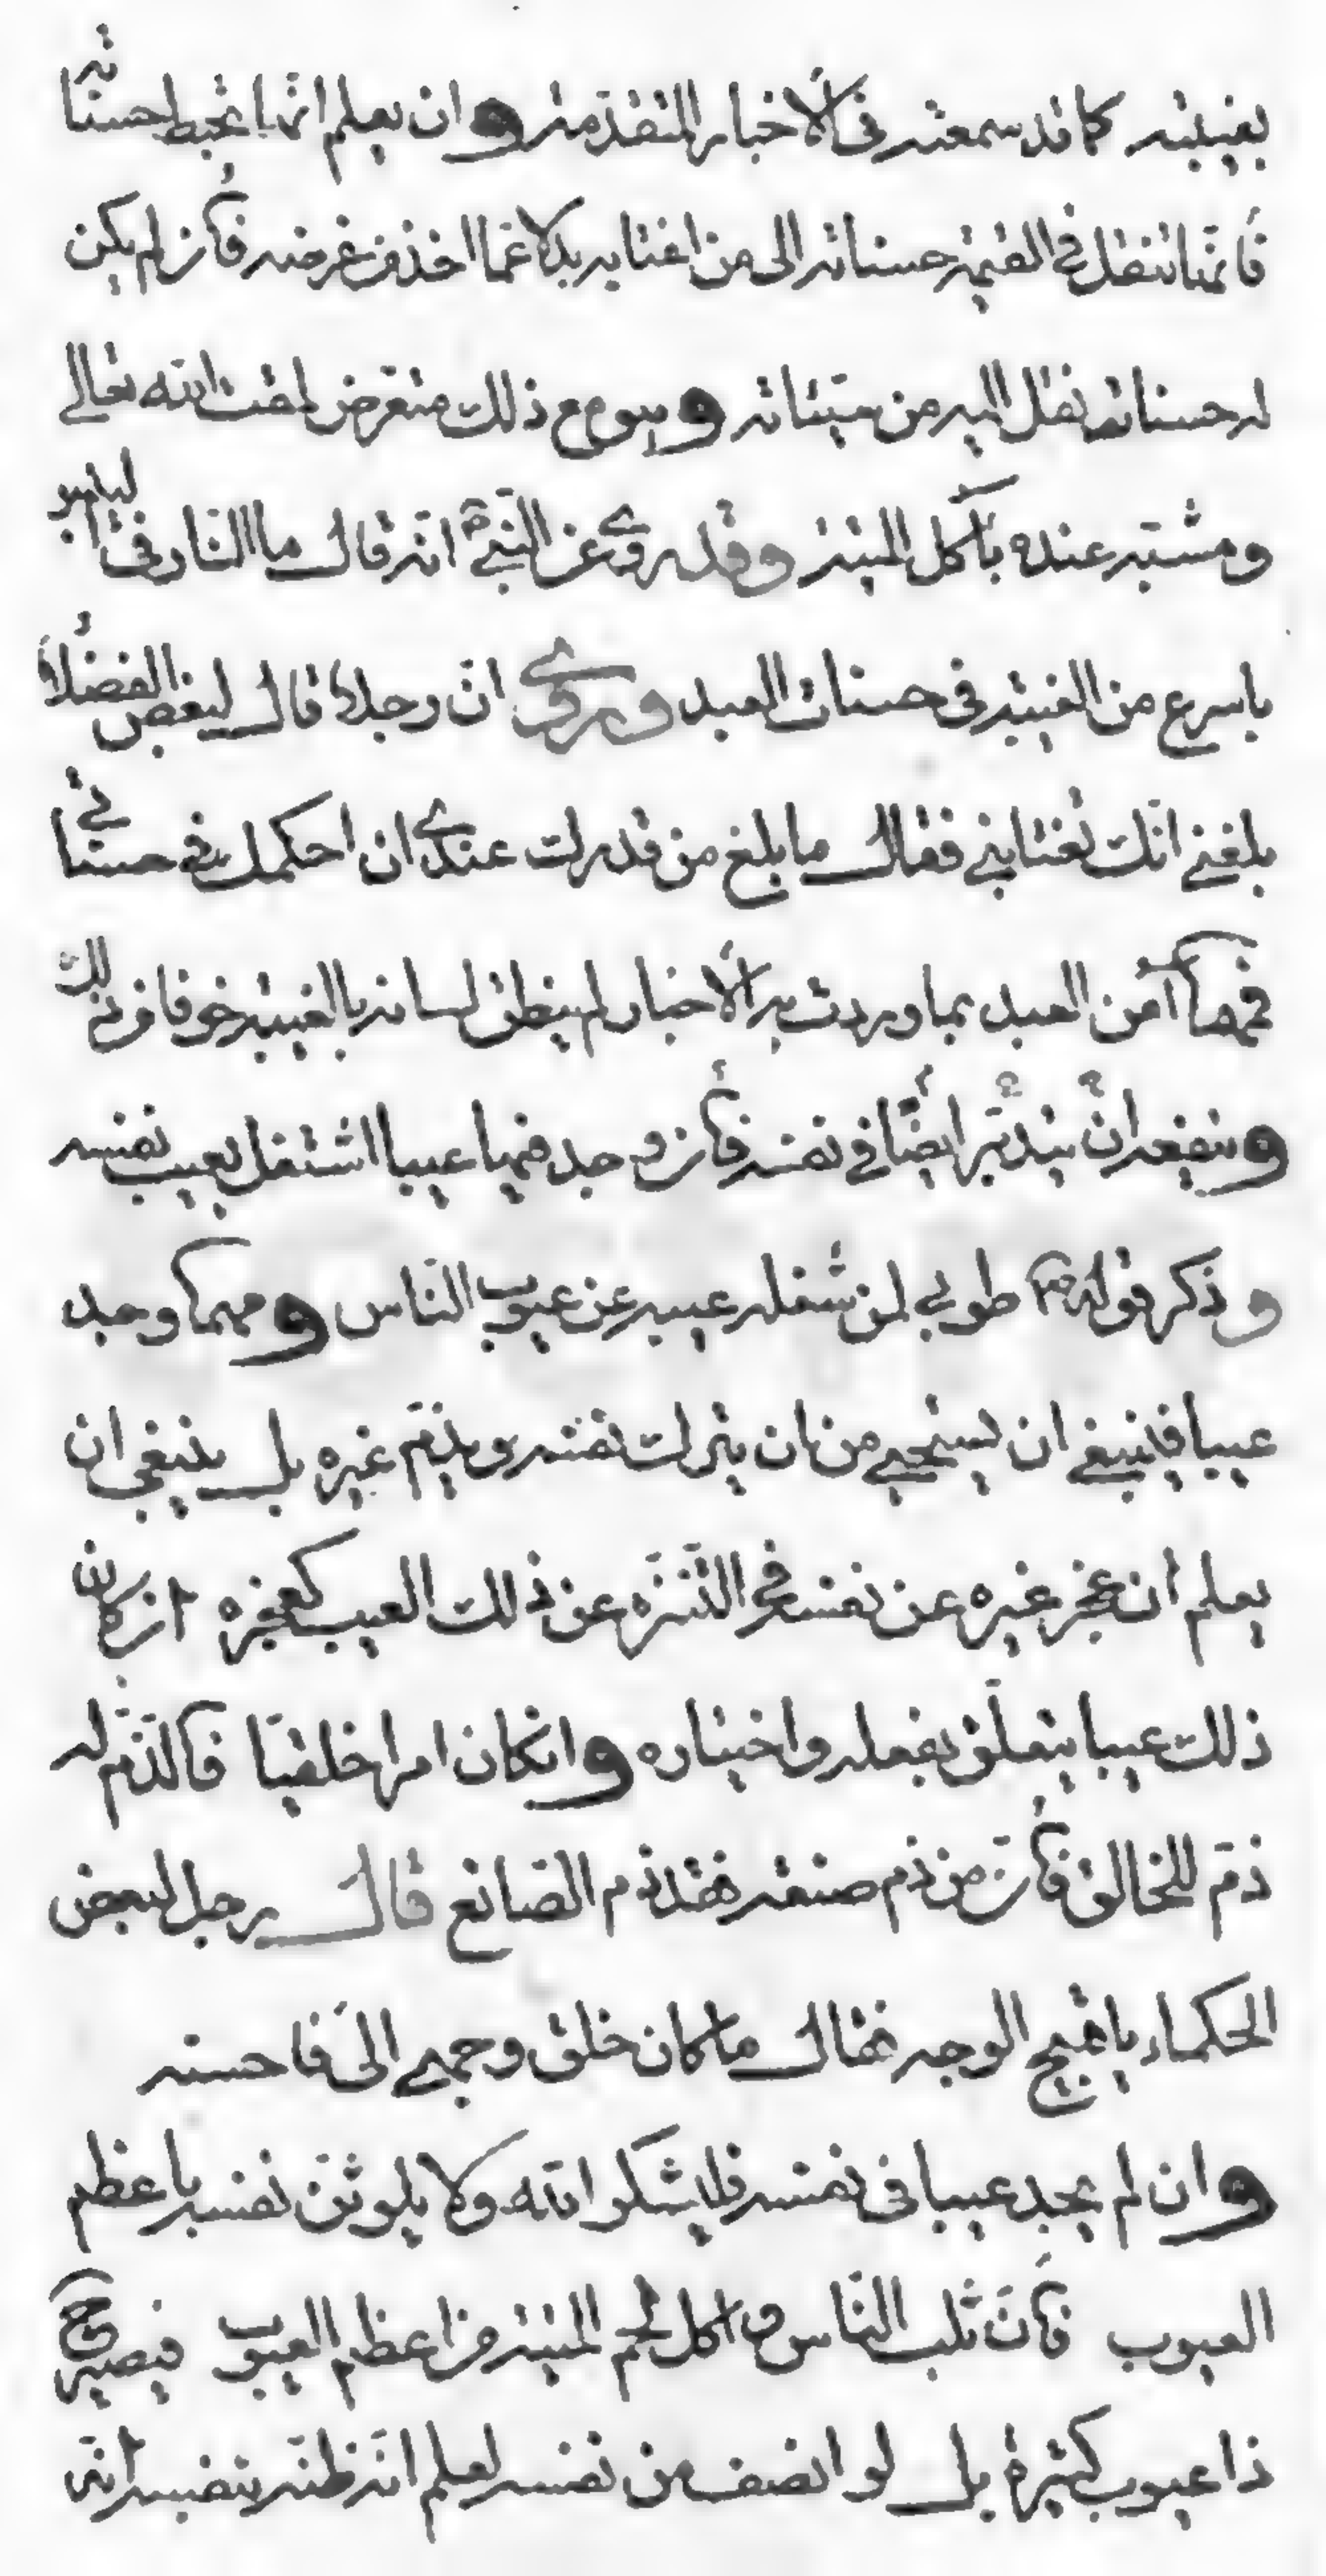 بغيبته كما قد سمعته فى الأخبار المتقدّمة وان يعلم انّها تحبط حسناته
فأنّها تنقل فى القيمة حسناته الى من اغتابه بدلا عمّا اخذ من عرضه فأن لم يكن
له حسنات نقل اليه من سيّئاته وهو مع ذلك متعرّض لمقت الله تعالى
ومشتبه عنده بآكل الميتة وقد روى عن النّبىّ ص انّه قال ما النّار فى اليابس
باسرع من الغيبة فى حسنات العبد وروى انّ رجلا قال لبعض الفضلاء
بلغنى انّك تغتابنى فقال ما بلغ من قدرك عندى ان احكمك فى حسناتى
فمهما آمن العبد بما وردت به الأخبار لم ينطق لسانه بالغيبة خوفا من ذلك
وينفعه ان يتدبّر ايضًا فى نفسه فأن وجد فيها عيبا اشتغل بعيب نفسه
وذكر قوله ص طوبى لمن شغله عيبه عن عيوب النّاس ومهما وجد
عيبا فينبغى ان يستحيى من ان يترك نفسه ويذمّ غيره بل ينبغى ان
يعلم ان عجز غيره عن نفسه فى التّنزّه عن ذلك العيب كعجزه ان كان
ذلك عيبا يتعلّق بفعله واختياره وانكان امرا خلقيّا فالذّمّ له
ذمّ للخالق فأنّ من ذم صنعة فقد ذم الصّانع قال رجل لبعض
الحكماء يا قبيح الوجه فقال ما كان خلق وجهى الىّ فاحسنه
وان لم يجد عيبا فى نفسه فليشكر الله ولا يلوثنّ نفسه باعظم
العيوب فأنّ ثلب النّاس و اكل لحم الميتة من اعظم العيوب فيصير ح
ذا عيوب كثيرة بل لو انصف من نفسه لعلم انّ ظنّه بنفسه انّه